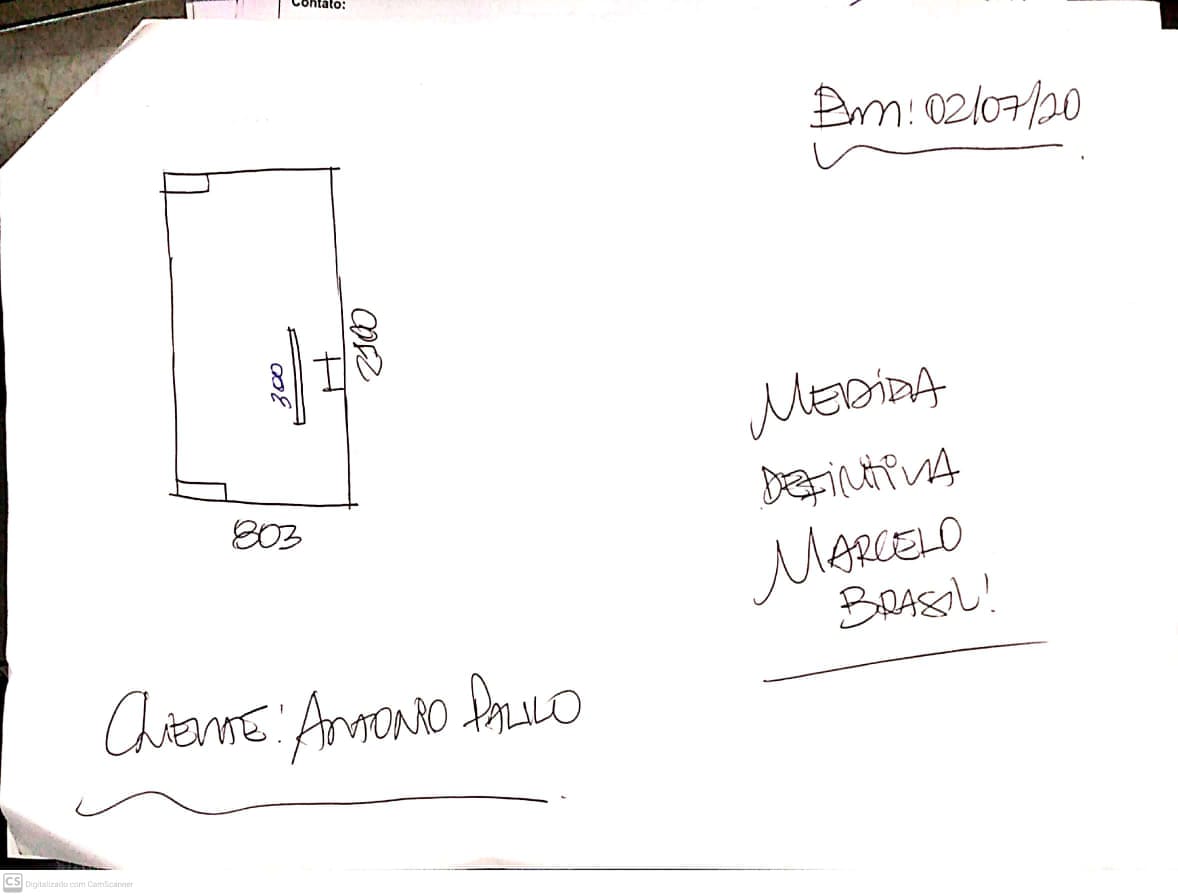 Contato:
Em: 02/07/20
2100
300
803
MEDIDA
DEFINITIVA
MARCELO
BRASIL!
CLIENTE: ANTONIO PAULO
CS Digitalizado com CamScanner